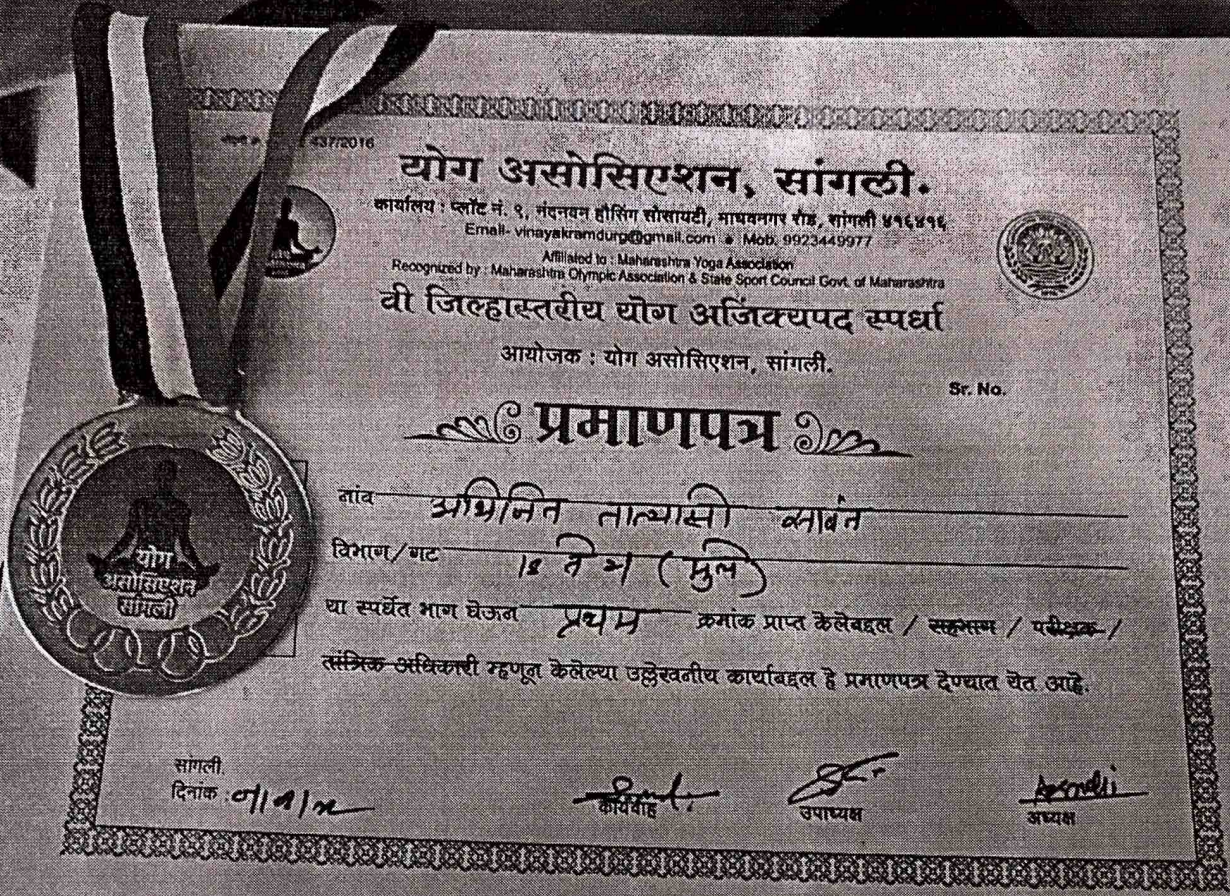 437/2016
योग असोसिएशन, सांगली.
कार्यालय : प्लॉट नं. ९, नंदनवन हौसिंग सोसायटी, माधवनगर रोड, सांगली ४१६४१६
Email- vinayakramdurg@gmail.com Mob. 9923449977
Affiliated to : Maharashtra Yoga Association
Recognized by : Maharashtra Olympic Association & State Sport Council Govt. of Maharashtra
वी जिल्हास्तरीय योग अजिंक्यपद स्पर्धा
आयोजक : योग असोसिएशन, सांगली.
Sr. No.
प्रमाणपत्र
नांव अभिजित तात्यासो सावंत
विभाग/गट (मुले)
या स्पर्धेत भाग घेऊन प्रथम क्रमांक प्राप्त केलेबद्दल / सहभाग / परीक्षक /
तांत्रिक अधिकारी म्हणून केलेल्या उल्लेखनीय कार्याबद्दल हे प्रमाणपत्र देण्यात येत आहे.
योग
असोसिएशन
सांगली
सांगली.
दिनांक :
कार्यवाह उपाध्यक्ष अध्यक्ष